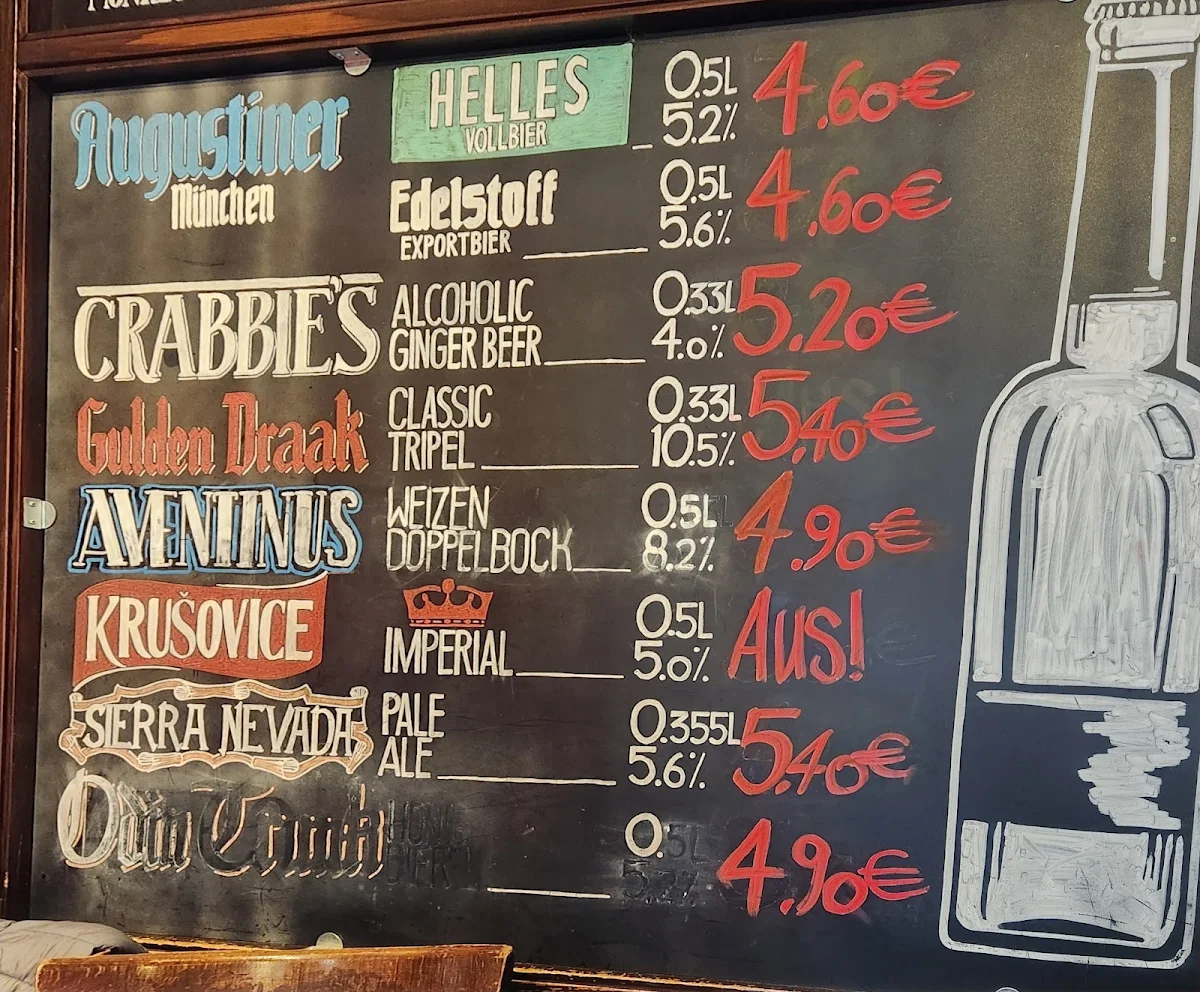 Augustiner
München
HELLES
VOLLBIER
0.5L
5.2%
4.60€
Edelstoff
EXPORTBIER
0.5L
5.6%
4.60€
CRABBIE'S
ALCOHOLIC
GINGER BEER
0.33L
4.0%
5.20€
Gulden Draak
CLASSIC
TRIPEL
0.33L
10.5%
5.40€
AVENTINUS
WEIZEN
DOPPELBOCK
0.5L
8.2%
4.90€
KRUŠOVICE
IMPERIAL
0.5L
5.0%
AUS!
SIERRA NEVADA
PALE
ALE
0.355L
5.6%
5.40€
Odin Trunk
HONIG
BIER
0.5L
5.2%
4.90€